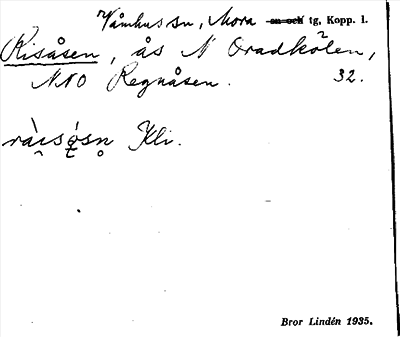 Våmhus sn, Mora sn och tg, Kopp. l.
Risåsen, ås N Oradkölen,
NNO Regnåsen. 32.
ràisǫ́sn Kli.
Bror Lindén 1935.